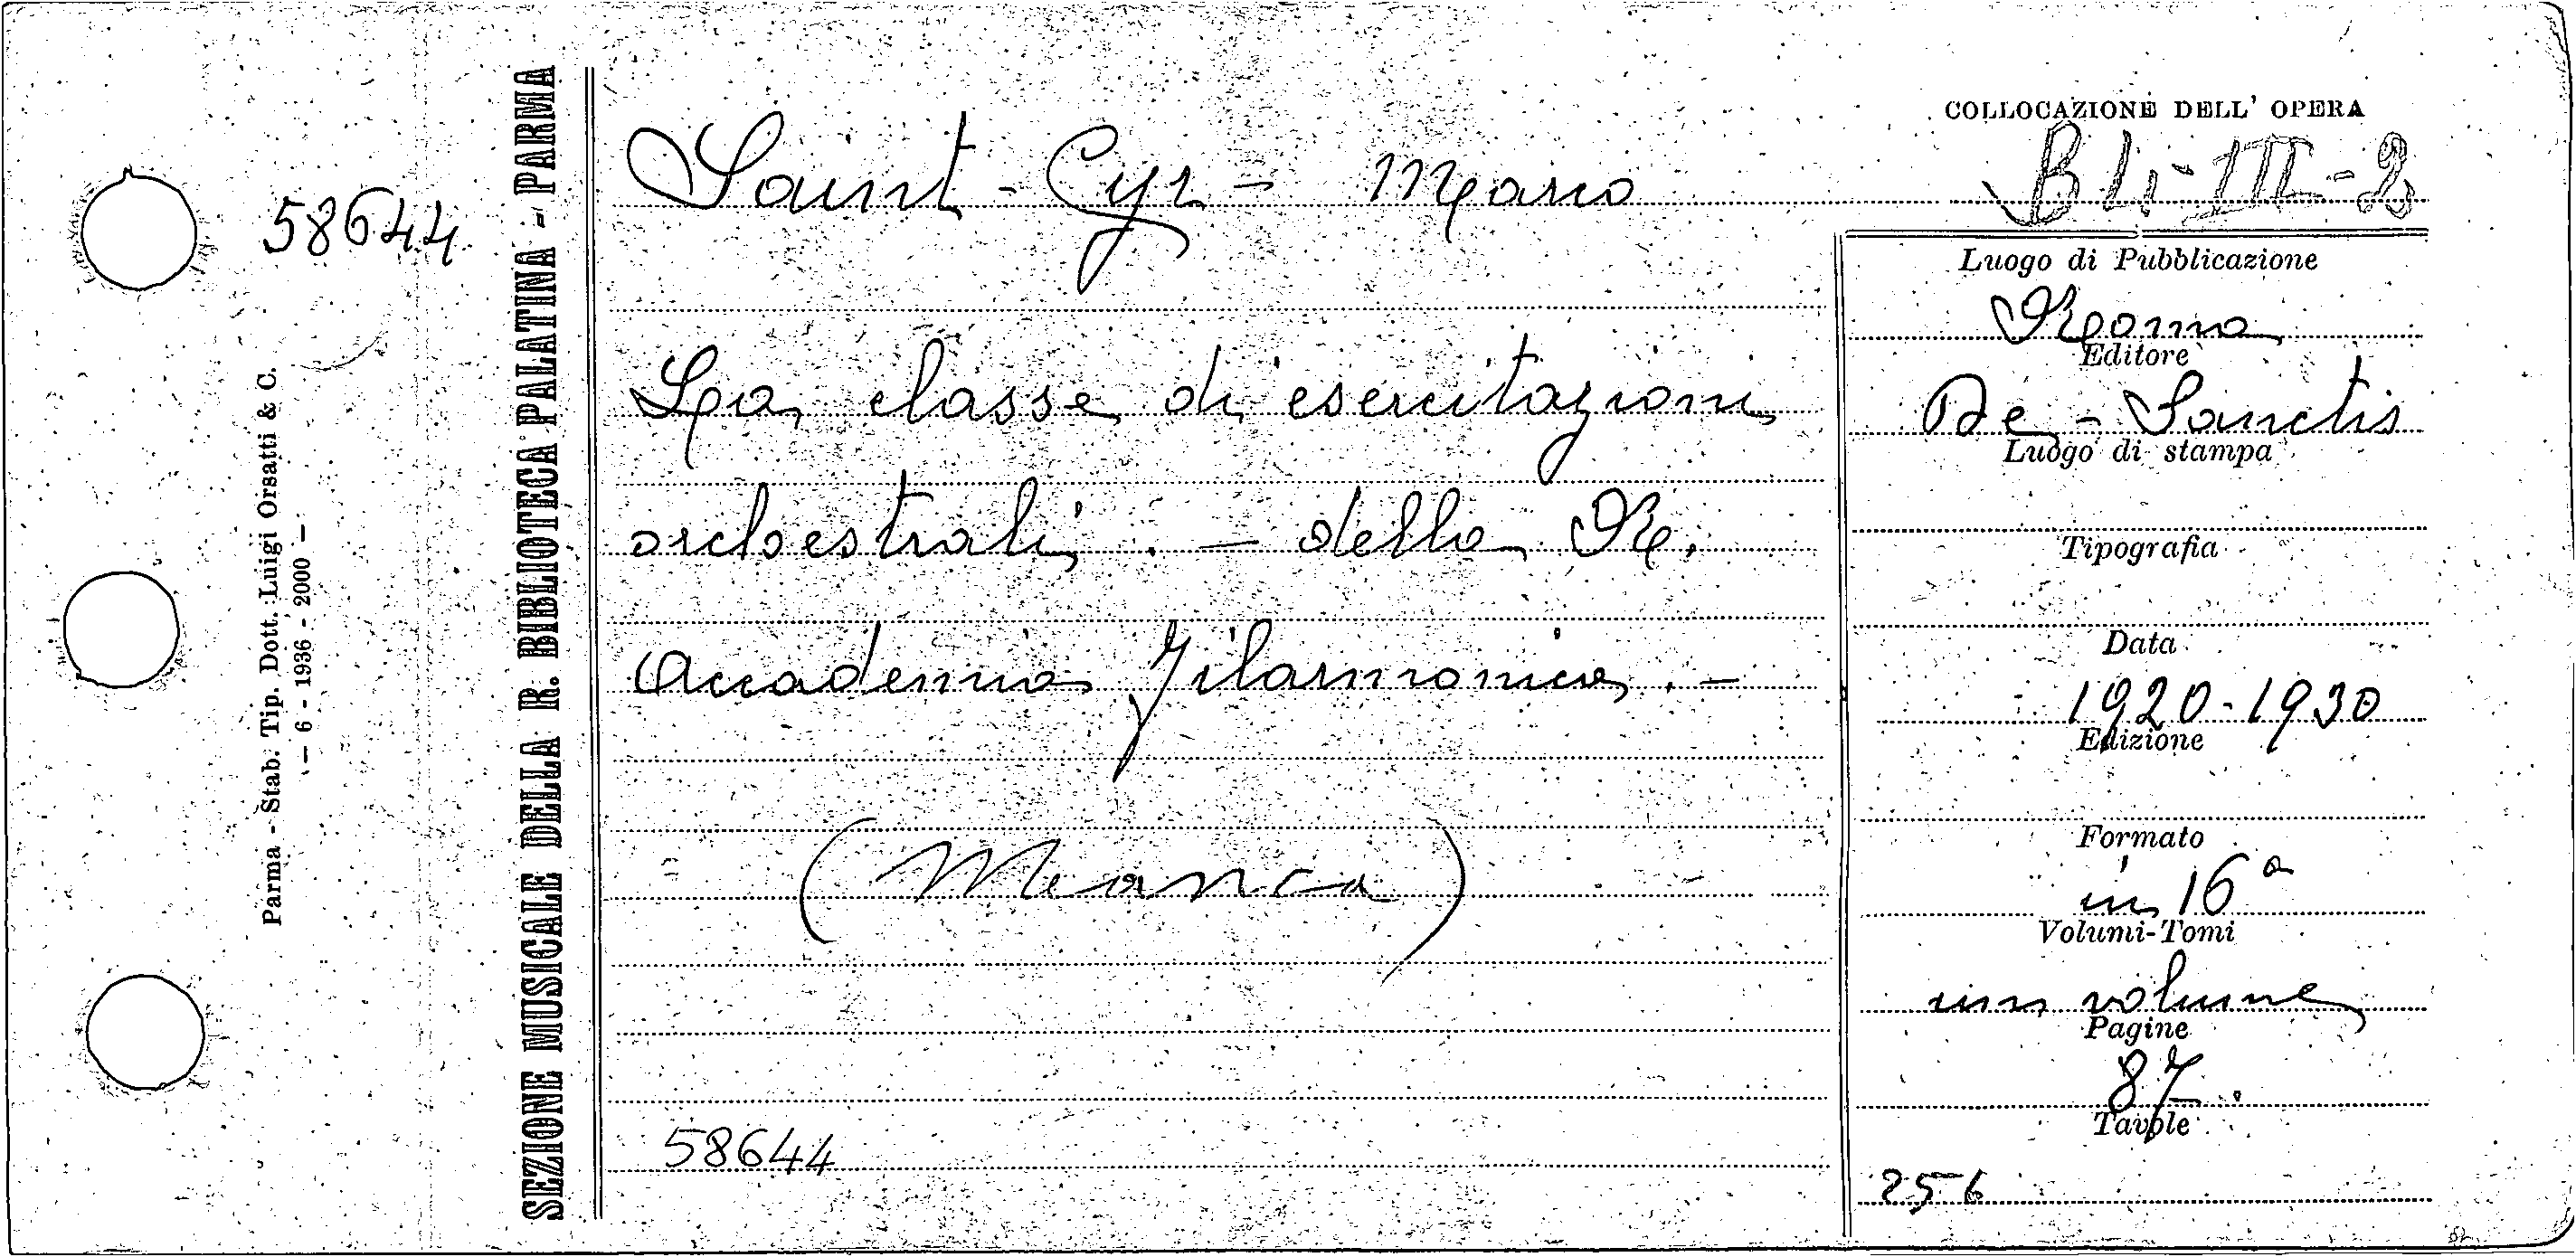 58644
Parma - Stab. Tip. Dott. Luigi Orsatti & C.
— 6 - 1936 - 2000 —
SEZIONE MUSICALE DELLA R. BIBLIOTECA PALATINA - PARMA
Saint-Cyr - Mario
La classe di esercitazioni
orchestrali. - della R.
Accademia Filarmonica. -
(Manca)
58644
COLLOCAZIONE DELL' OPERA
Luogo di Pubblicazione
Roma
Editore
De - Sanctis
Luogo di stampa
Tipografia
Data
1920-1930
Edizione
Formato
in 16°
Volumi-Tomi
un volume
Pagine
87.
Tavole
256